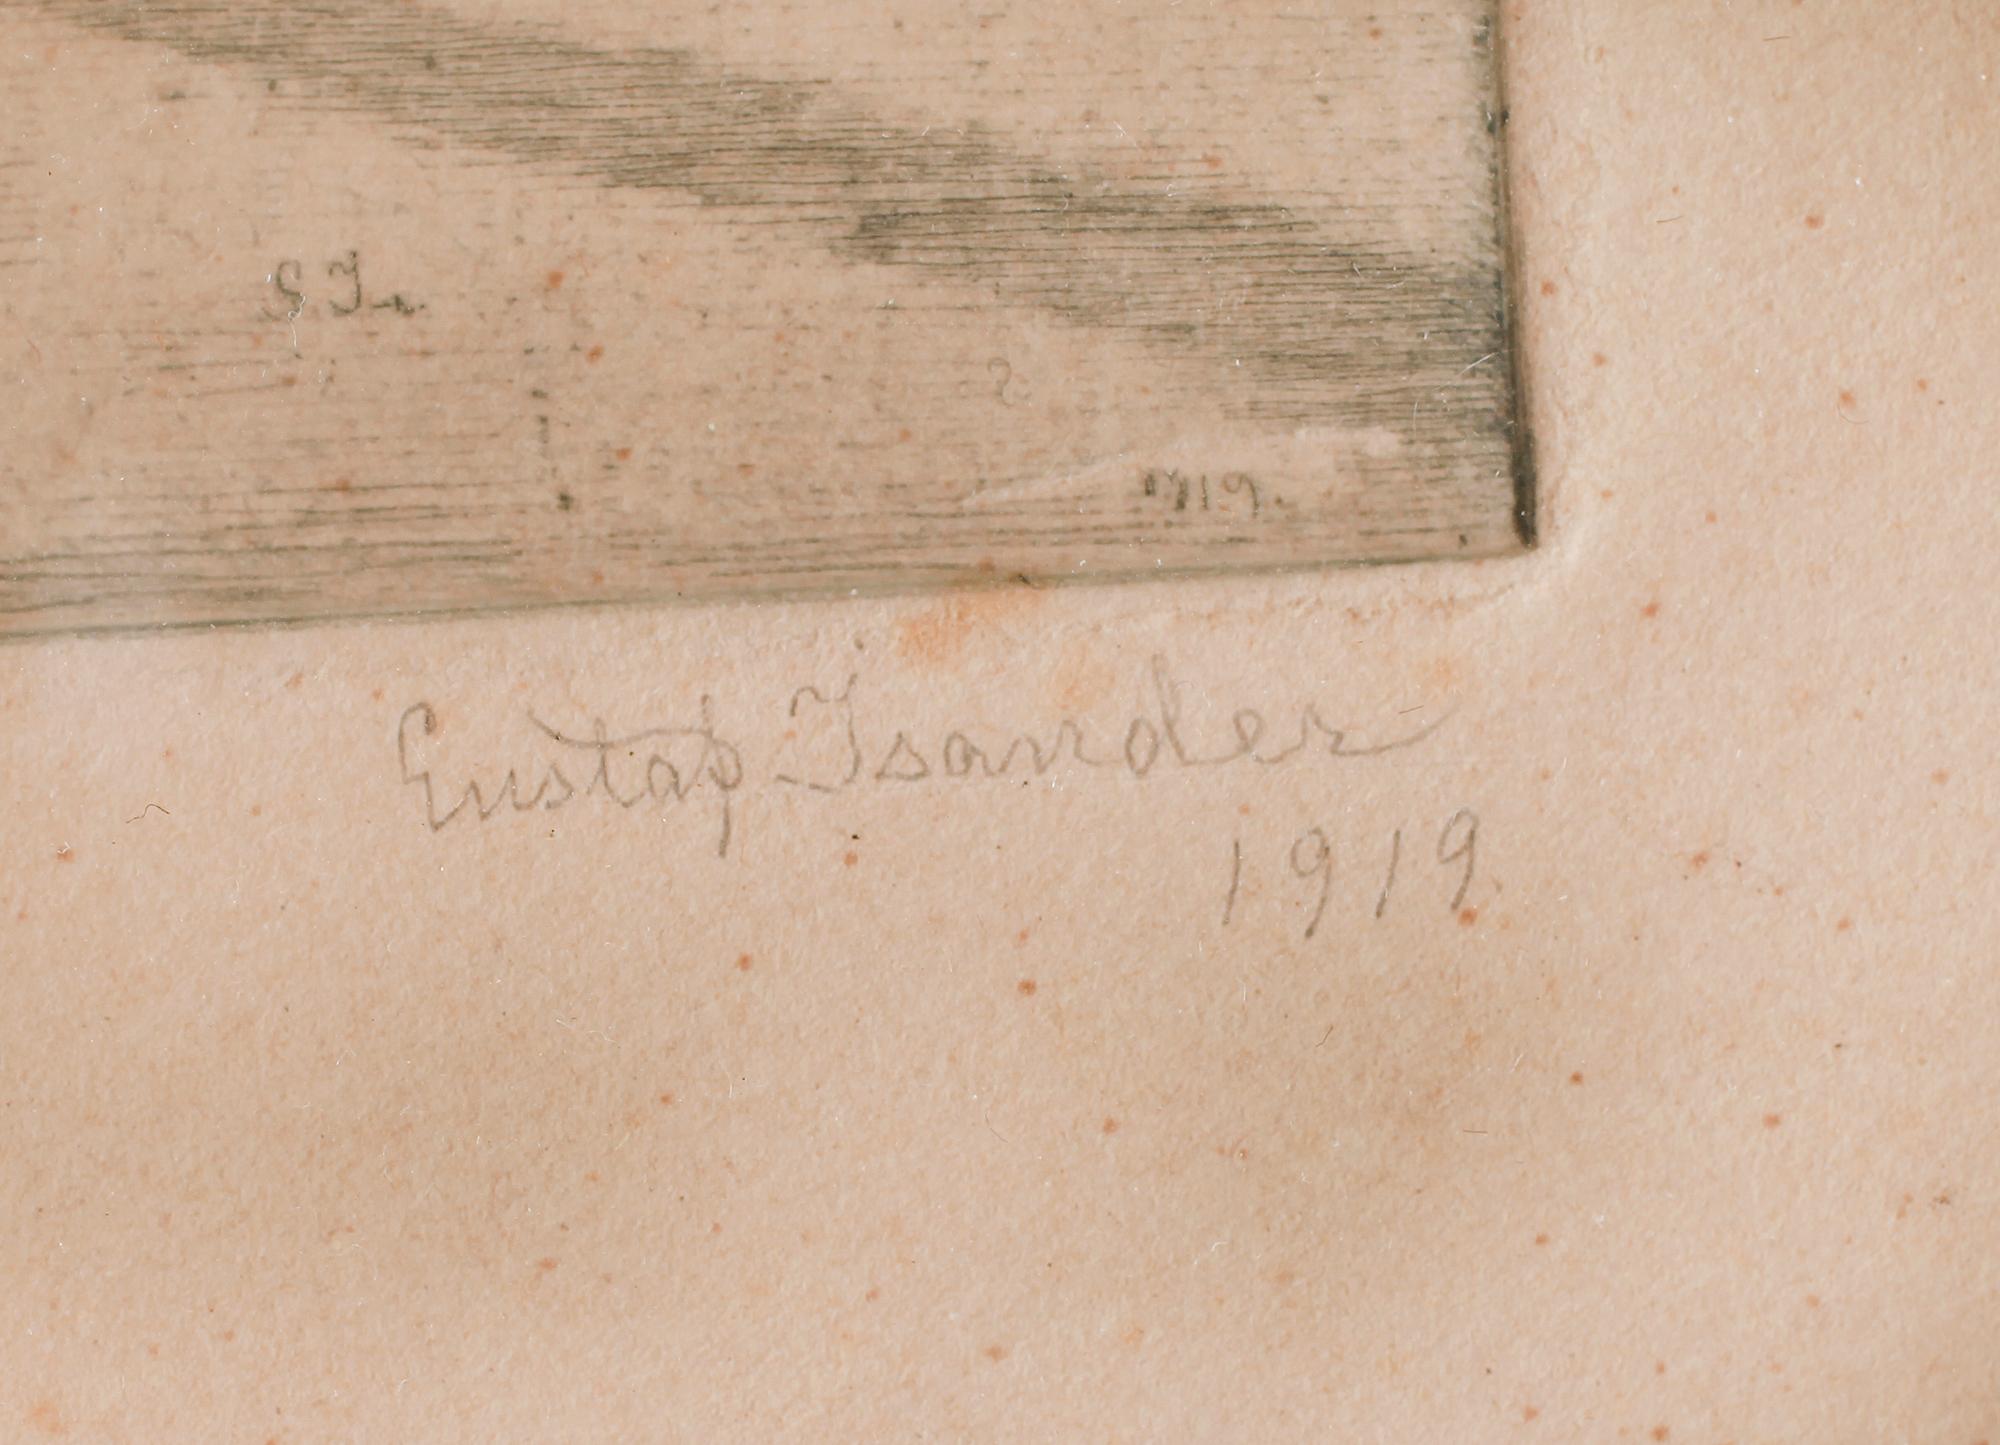 G.I.
1919.
Gustaf Isander
1919